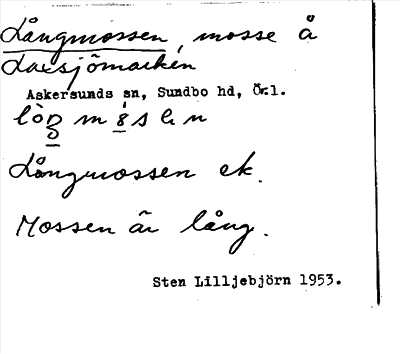 Långmossen, mosse å
Laxsjömarken
Askersunds sn, Sundbo hd, Örl.
Långmossen ek.
Mossen är lång.
Sten Lilljebjörn 1953.